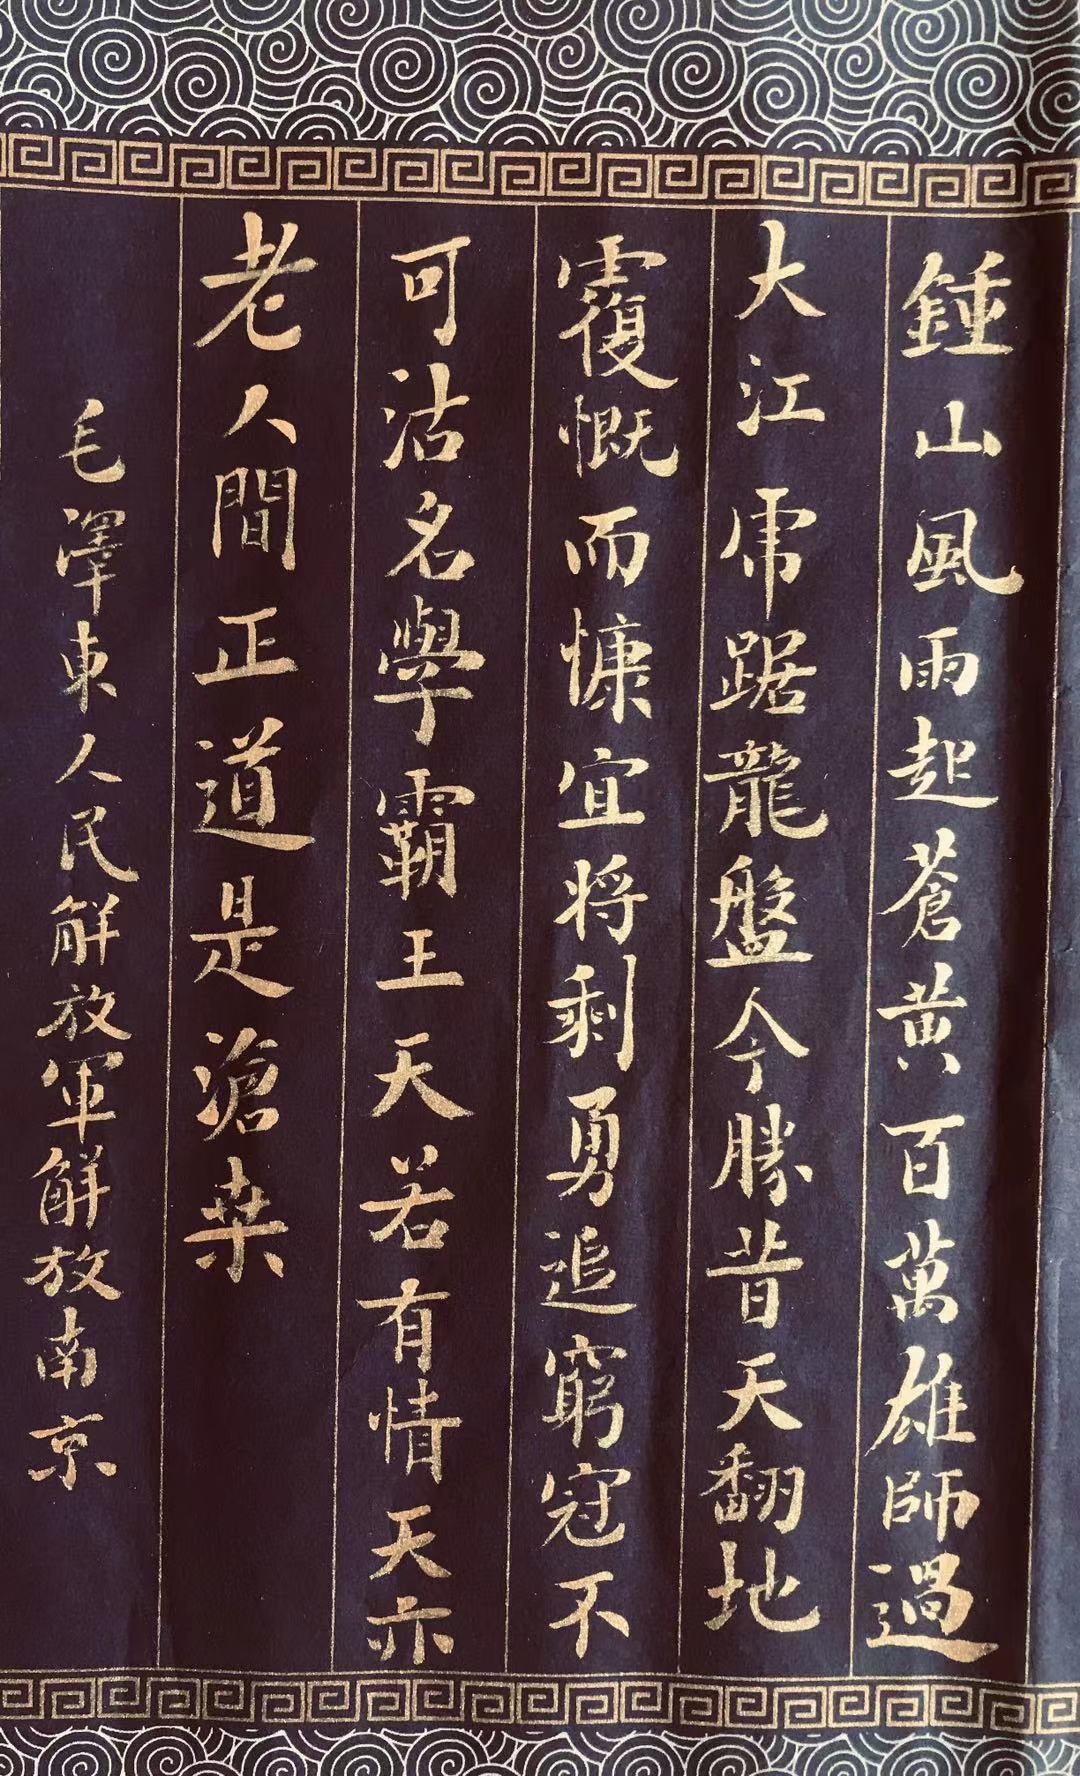 鍾山風雨起蒼黃百萬雄師過
大江虎踞龍盤今勝昔天翻地
覆慨而慷宜將剩勇追窮冦不
可沽名學霸王天若有情天亦
老人間正道是滄桒
毛澤東人民解放軍解放南京